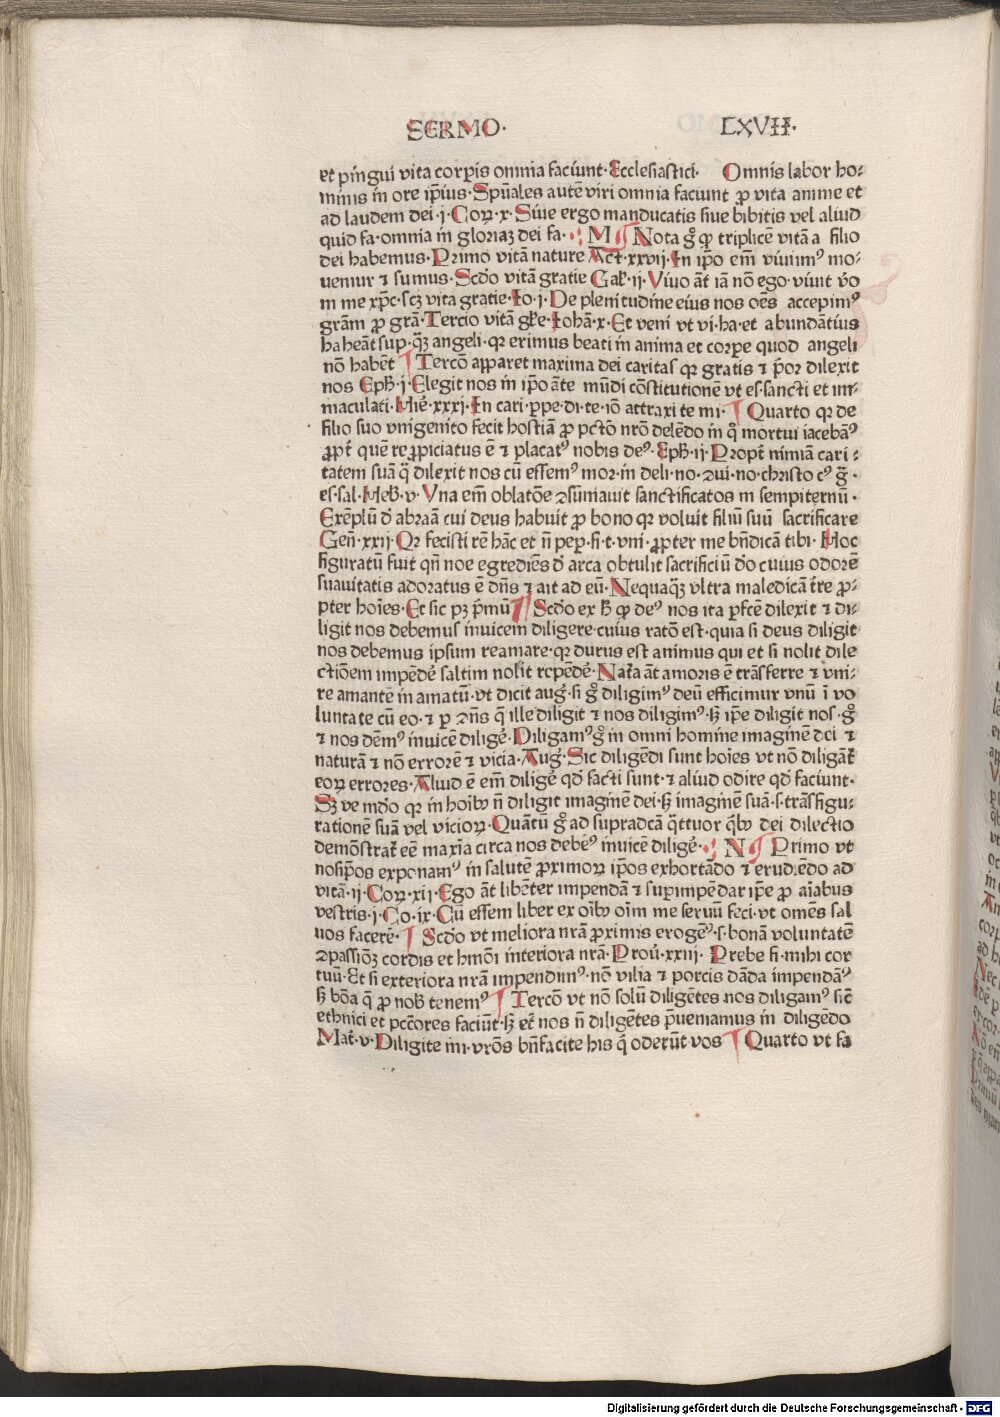 SERMO· LXVII·
et pingui vita corpis omnia faciunt· Ecclesiastici· Omnis labor ho⸗
minis in ore ip̄ius· Spūales autē viri omnia faciunt ꝓ vita anime et
ad laudem dei· j· Coꝝ· x· Siue ergo manducatis siue bibitis vel aliud
quid fa· omnia in gloriaꝫ dei fa· M Nota gͦ ꝙ triplicē vitā a filio
dei habemus· Primo vitā nature Act· xxvij· In ip̄o em̄ viuimꝰ mo⸗
uemur ⁊ sumus· Scd̄o vitā gratie Gal̄· ij· Viuo āt iā nō ego· viuit v̄o
in me xp̄c· scꝫ vita gratie· Io· j· De plenitudine eius nos oēs accepimꝰ
grām ꝓ grā· Tercio vitā gl̄ie· Iohā· x· Et veni vt vi· ha· et abundātius
habeāt sup· qͣꝫ angeli· qꝛ erimus beati in anima et corpe quod angeli
nō habēt ¶ Tercō apparet maxima dei caritas qꝛ gratis ⁊ p̄or dilexit
nos Eph̄· j· Elegit nos in ip̄o āte mūdi cōstitutionē vt es· sancti et im⸗
maculati· Hie᷑· xxxj· In cari· ꝑpe· di· te· iō attraxi te mi· ¶ Quarto qꝛ de
filio suo vnigenito fecit hostiā ꝓ pctō nrō delēdo in qͦ mortui iacebāꝰ
ꝓpt̄ quē repropiciatus ē ⁊ placatꝰ nobis deꝰ· Eph̄· ij· Propt̄ nimiā cari⸗
tatem suā q̄ dilexit nos cū essemꝰ mor· in deli· no· ꝯui· no· christo cꝰ ḡ·
es· sal· Heb̄· v· Vna em̄ oblatōe ꝯsūmauit sanctificatos in sempiternū·
Exēplū d̄ abraā cui deus habuit ꝓ bono qꝛ voluit filiū suū sacrificare
Gen̄· xxij· Qꝛ fecisti rē hāc et n̄ peꝑ· fi· t· vni· ꝓpter me bn̄dicā tibi· Hoc
figuratū fuit qn̄ noe egrediēs d̄ arca obtulit sacrificiū dō cuius odorē
suauitatis adoratus ē dn̄s ⁊ ait ad eū· Nequaqͣꝫ vltra maledicā t̄re ꝓ⸗
pter hoīes· Et sic pꝫ p̄mū ¶ Scd̄o ex h̄ ꝙ deꝰ nos ita ꝑfcē dilexit ⁊ di⸗
ligit nos debemus inuicem diligere· cuius ratō est· quia si deus diligit
nos debemus ipsum reamare· qꝛ durus est animus qui et si nolit dile
ctiōem impēde᷑ saltim nolit repēde᷑· Nat̄a āt amoris ē trāsferre ⁊ vni⸗
re amantē in amatū· vt dicit aug᷑· si gͦ diligimꝰ deū efficimur vnū ī vo
luntate cū eo· ⁊ ꝑ ꝯn̄s q̄ ille diligit ⁊ nos diligimꝰ· sꝫ ip̄e diligit nos· gͦ
⁊ nos dēmꝰ inuicē dilige᷑· Diligamꝰ gͦ in omni homine imaginē dei ⁊
naturā ⁊ nō errorē ⁊ vicia· Aug᷑· Sic diligēdi sunt hoīes vt nō diligāt̄
eoꝝ errores· Aliud ē em̄ dilige᷑ qd̄ facti sunt· ⁊ aliud odire qd̄ faciunt·
Sꝫ ve mdō qꝛ in hoībꝰ n̄ diligit imaginē dei· sꝫ imaginē suā· s· trāsfigu⸗
rationē suā vel vicioꝝ· Quātū gͦ ad supradcā qͣttuor qͥbꝰ dei dilectio
demōstrat̄ eē maxīa circa nos debeꝰ inuicē dilige᷑· N ¶ Primo vt
nosip̄os exponamꝰ in salutē ꝓximoꝝ ip̄os exhortādo ⁊ erudiēdo ad
vitā· ij· Coꝝ· xij· Ego āt libēter impendā ⁊ supimpēdar ip̄e ꝓ aīabus
vestris· j· Co· ix· Cū essem liber ex oībꝰ oīm me seruū feci· vt omēs sal
uos facerē· ¶ Scd̄o vt meliora nrā ꝓximis erogēꝰ· s· bonā voluntatē
ꝯpassiōꝫ cordis et hmōi interiora nrā· Prou᷑· xxiij· Prebe fi· mihi cor
tuū· Et si exteriora nrā impendimꝰ· nō vilia ⁊ porcis dāda impendāꝰ
sꝫ bōa q̄ ꝓ nob᷑ tenemꝰ ¶ Tercō vt nō solū diligētes nos diligamꝰ sic̄
ethnici et pctōres faciūt· sꝫ et̄ nos n̄ diligētes p̄ueniamus in diligēdo
Mat᷑· v· Diligite īmi· vrōs bn̄facite his q̄ oderūt vos ¶ Quarto vt fa
Digitalisierung gefördert durch die Deutsche Forschungsgemeinschaft - DFG